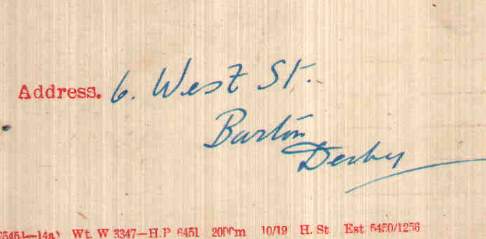 Address. 6. West St.
Burton
Derby
Wt. W 3347—H.P. 6451 2000m 10/19 H. St Est 5450/1256